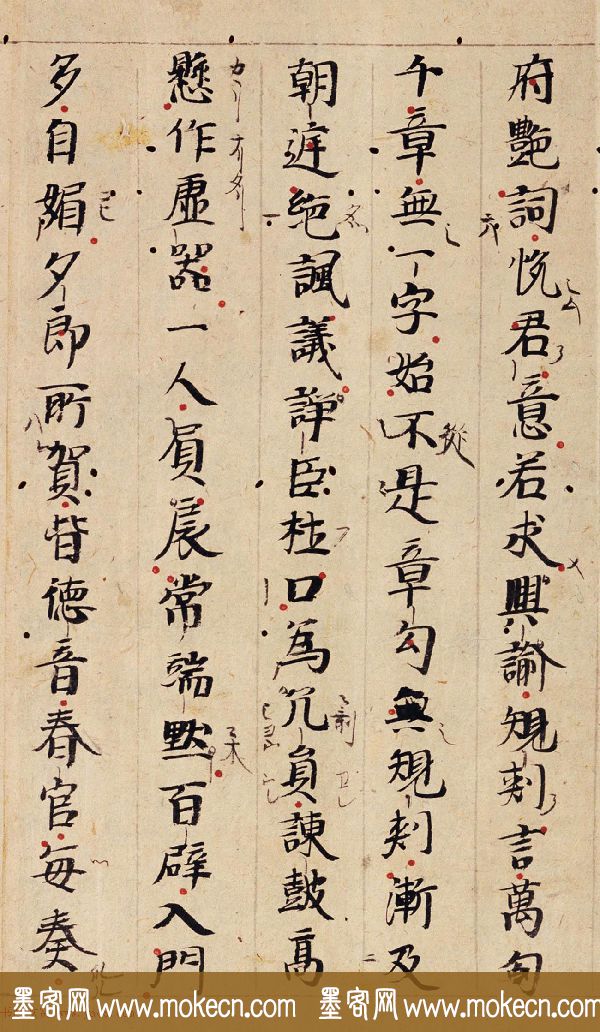 府艷詞悦君意若求興諭規刾言萬句
千章無一字始不是章勾無規刾漸及
朝逛絶諷議諍臣杜口為冗員諌鼓高
懸作虛器一人負扆常端默百辟入門
多自媚夕郎所賀皆徳音春官每奏
墨客网 www.mokecn.com 墨客网 www.mokecn.com